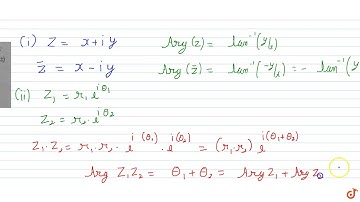 (i) Z = x + i y    Arg (z) = tan⁻¹ (y/x)
z̄ = x − i y    Arg (z̄) = tan⁻¹ (−y/x) = − tan⁻¹ (y
(ii) Z₁ = r₁ e^{iθ₁}
Z₂ = r₂ . e^{iθ₂}
Z₁ . Z₂ = r₁ . r₂ . e^{i(θ₁)} . e^{i(θ₂)} = (r₁ . r₂) e^{i(θ₁+θ₂)}
Arg Z₁Z₂ = θ₁ + θ₂ = Arg Z₁ + Arg Z₂